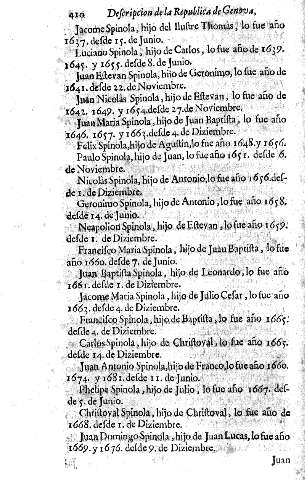 410 Descripcion de la Republica de Genova,
Jacome Spinola, hijo del Ilustre Thomas, lo fue año
1637. desde 15. de Junio.
Luciano Spinola, hijo de Carlos, lo fue año de 1639.
1645. y 1655. desde 8. de Junio.
Juan Estevan Spinola, hijo de Geronimo, lo fue año de
1641. desde 22. de Noviembre.
Juan Nicolás Spinola, hijo de Estevan, lo fue año de
1642. 1649. y 1654. desde 27. de Noviembre.
Juan Maria Spinola, hijo de Juan Baptista, lo fue año
1646. 1657. y 1663. desde 4. de Diziembre.
Felix Spinola, hijo de Agustin, lo fue año 1648. y 1656.
Paulo Spinola, hijo de Juan, lo fue año 1651. desde 6.
de Noviembre.
Nicolàs Spinola, hijo de Antonio, lo fue año 1656. des-
de 1. de Diziembre.
Geronimo Spinola, hijo de Antonio, lo fue año 1658.
desde 14. de Junio.
Neapolion Spinola, hijo de Estevan, lo fue año 1659.
desde 1. de Diziembre.
Francisco Maria Spinola, hijo de Juan Baptista, lo fue
año 1660. desde 7. de Junio.
Juan Baptista Spinola, hijo de Leonardo, lo fue año
1661. desde 1. de Diziembre.
Jacome Maria Spinola, hijo de Julio Cesar, lo fue año
1663. desde 4. de Diziembre.
Francisco Spinola, hijo de Baptista, lo fue año 1665.
desde 4. de Diziembre.
Carlos Spinola, hijo de Christoval, lo fue año 1665.
desde 14. de Diziembre.
Juan Antonio Spinola, hijo de Franco, lo fue año 1660.
1674. y 1681. desde 11. de Junio.
Phelipe Spinola, hijo de Julio, lo fue año 1667. des-
de 5. de Junio.
Christoval Spinola, hijo de Christoval, lo fue año
1668. desde 1. de Diziembre.
Juan Domingo Spinola, hijo de Juan Lucas, lo fue año
1669. y 1676. desde 9. de Diziembre.
Juan